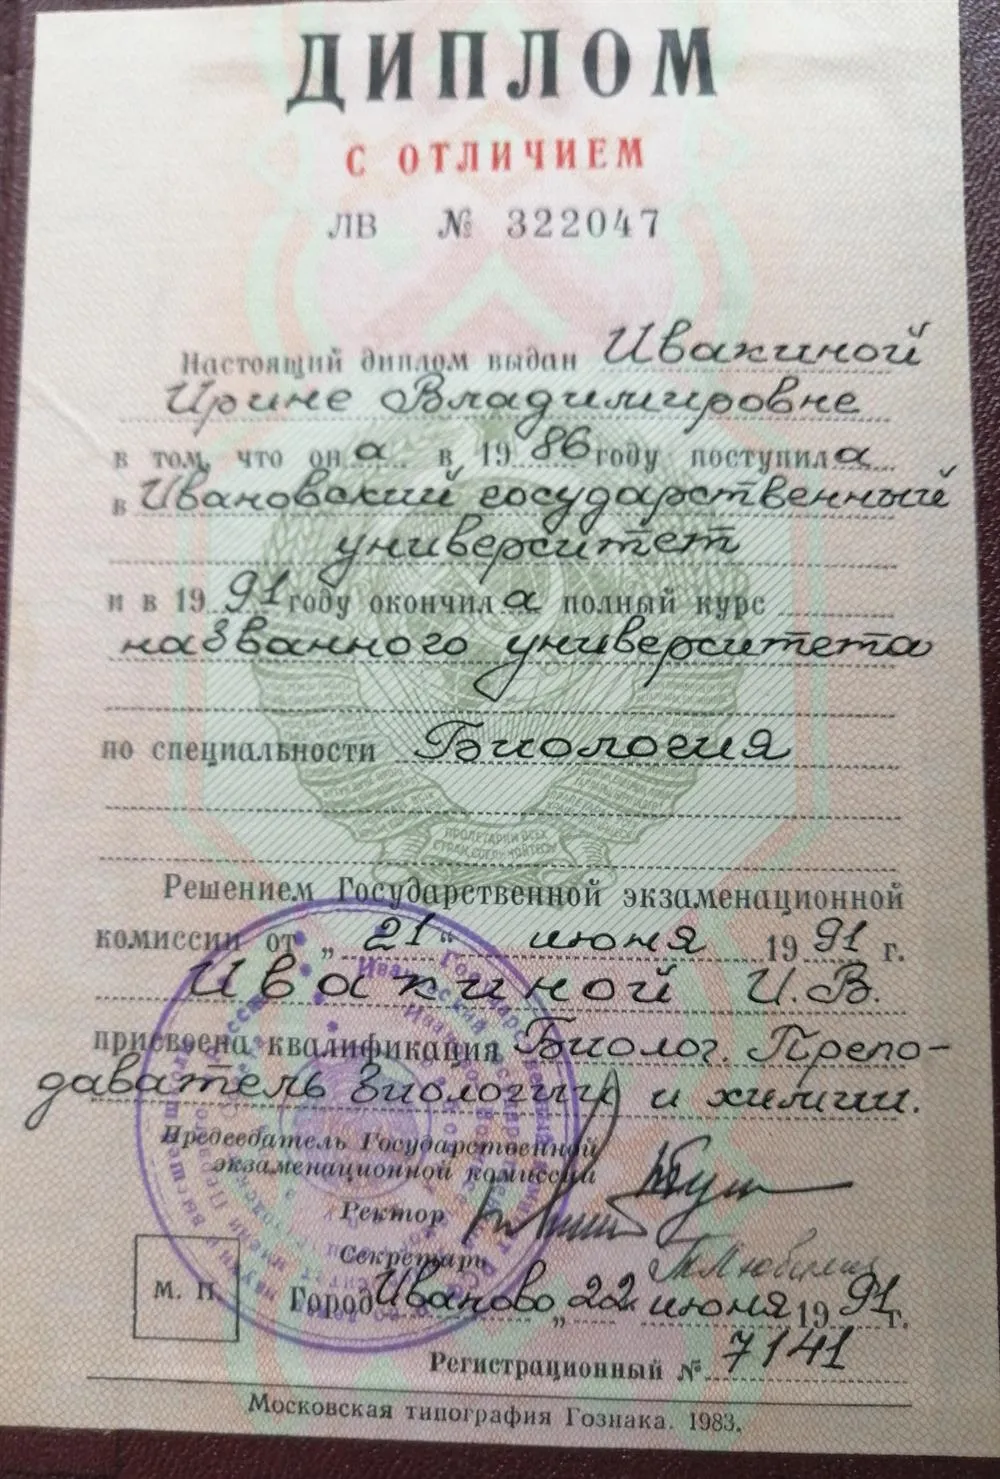 ДИПЛОМ
С ОТЛИЧИЕМ
ЛВ № 322047
Настоящий диплом выдан Ивакиной
Ирине Владимировне
в том, что он а в 19 86 году поступил а
в Ивановский государственный
университет
и в 19 91 году окончил а полный курс
названного университета
по специальности Биология
ПРОЛЕТАРИИ ВСЕХ
СТРАН, СОЕДИНЯЙТЕСЬ
Решением Государственной экзаменационной
комиссии от „ 21 “ июня 19 91 г.
Ивакиной И. В.
присвоена квалификация Биолог. Препо-
даватель биологии и химии.
Председатель Государственной
экзаменационной комиссии
Ректор
Секретарь
М. П. Город Иваново „ 22 июня 19 91 г.
Регистрационный № 7141
Московская типография Гознака. 1983.